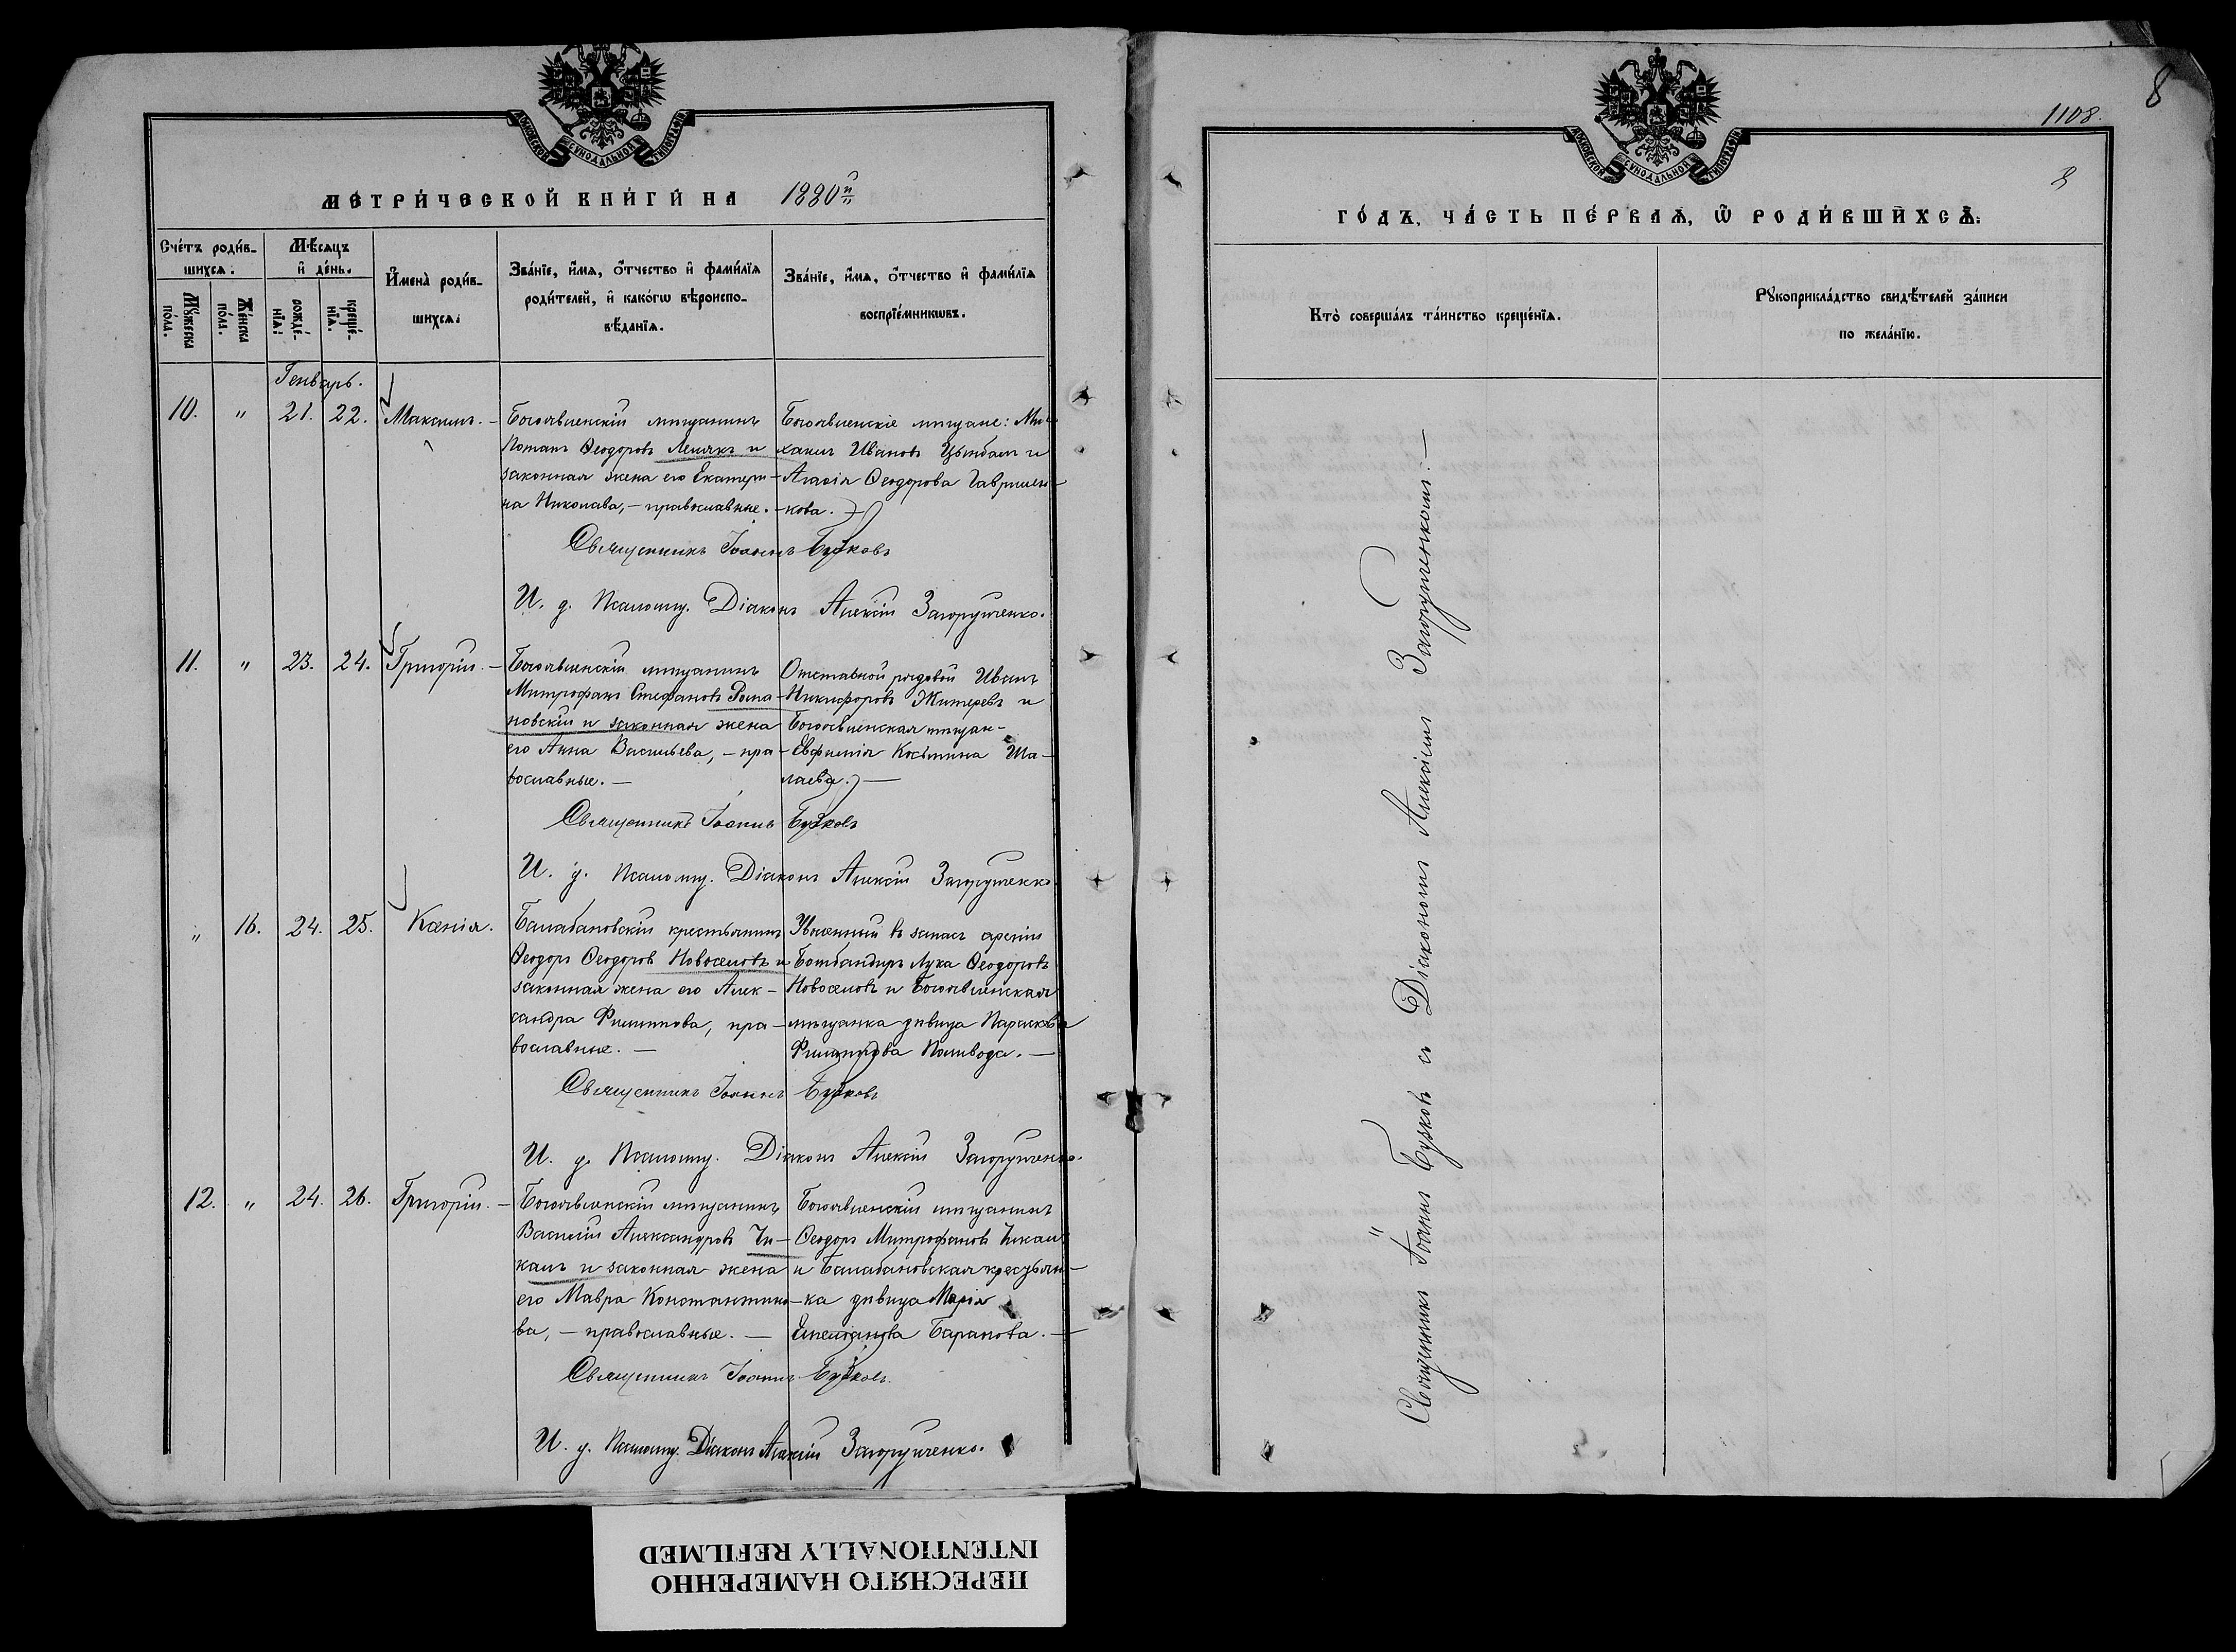 МОСКОВСКОЙ СѴНОДАЛЬНОЙ ТИПОГРАФІИ
МЕТРИ́ЧЕСКОЙ КНИ́ГИ НА 1880й
Сче́тъ роди́в-
шихсѧ.
Мѣ́сѧцъ
и҆ де́нь.
Мꙋ́жеска
по́ла.
Же́нска
по́ла.
рожде́-
нїѧ.
креще́-
нїѧ.
И҆мена̀ роди́в-
шихсѧ.
Зва́нїе, и҆́мѧ, ѻ҆́тчество и҆ фами́лїѧ
роди́телей, и҆ како́гѡ вѣроиспо-
вѣ́данїѧ.
Зва́нїе, и҆́мѧ, ѻ҆́тчество и҆ фами́лїѧ
воспрїе́мникѡвъ.
Генварь.
10. " 21. 22. Максимъ. –
Богоявленскій мѣщанинъ
Потапъ Ѳеодоровъ Лемякъ и
законная жена его Екатери-
на Николаева, – православные.
Богоявленскіе мѣщане: Ми-
хаилъ Ивановъ Цымбалъ и
Агаѳія Ѳеодорова Гаврилен-
кова.
Священникъ Іоаннъ Бужковъ
И. д. Псаломщ. Діаконъ Алексій Загорупченко.
11. " 23. 24. Григорій. –
Богоявленскій мѣщанинъ
Митрофанъ Стефановъ Рома-
новскій и законная жена
его Анна Васильева, – пра-
вославные. –
Отставной рядовой Иванъ
Никифоровъ Житеревъ и
Богоявленская мѣщан-
Евфимія Косьмина Ша-
лаева. –
Священникъ Іоаннъ Бужковъ
И. д. Псаломщ. Діаконъ Алексій Загорупченко
" 16. 24. 25. Ксенія.
Балабановскій крестьянинъ
Ѳеодоръ Ѳеодоровъ Новоселовъ и
законная жена его Алек-
сандра Филиппова, пра-
вославные. –
Уволенный въ запасъ арміи
Бомбандиръ Лука Ѳеодоровъ
Новоселовъ и Богоявленская
мѣщанка дѣвица Параскева
Филиппова Поливода. –
Священникъ Іоаннъ Бужковъ
И. д. Псаломщ. Діаконъ Алексій Загорупченко.
12. " 24. 26. Григорій. –
Богоявленскій мѣщанинъ
Василій Александровъ Чи-
калъ и законная жена
его Мавра Константино-
ва, – православные. –
Богоявленскій мѣщанинъ
Ѳеодоръ Митрофановъ Чикалъ
и Балабановская крестьян-
ка дѣвица Марія
Емельянова Баранова. –
Священникъ Іоаннъ Бужковъ.
И. д. Псаломщ. Діаконъ Алексій Загорупченко.
8
1108.
МОСКОВСКОЙ СѴНОДАЛЬНОЙ ТИПОГРАФІИ
ГО́ДЪ, ЧА́СТЬ ПЕ́РВАѦ, Ѡ҆ РОДИ́ВШИХСѦ.
Кто̀ соверша́лъ та́инство креще́нїѧ.
Рꙋкоприкла́дство свидѣ́телей за́писи
по жела́нїю.
Священникъ Іоаннъ Бужковъ съ Діакономъ Алексіемъ Загорупченкомъ. –
ПЕРЕСНЯТО НАМЕРЕННО
INTENTIONALLY REFILMED